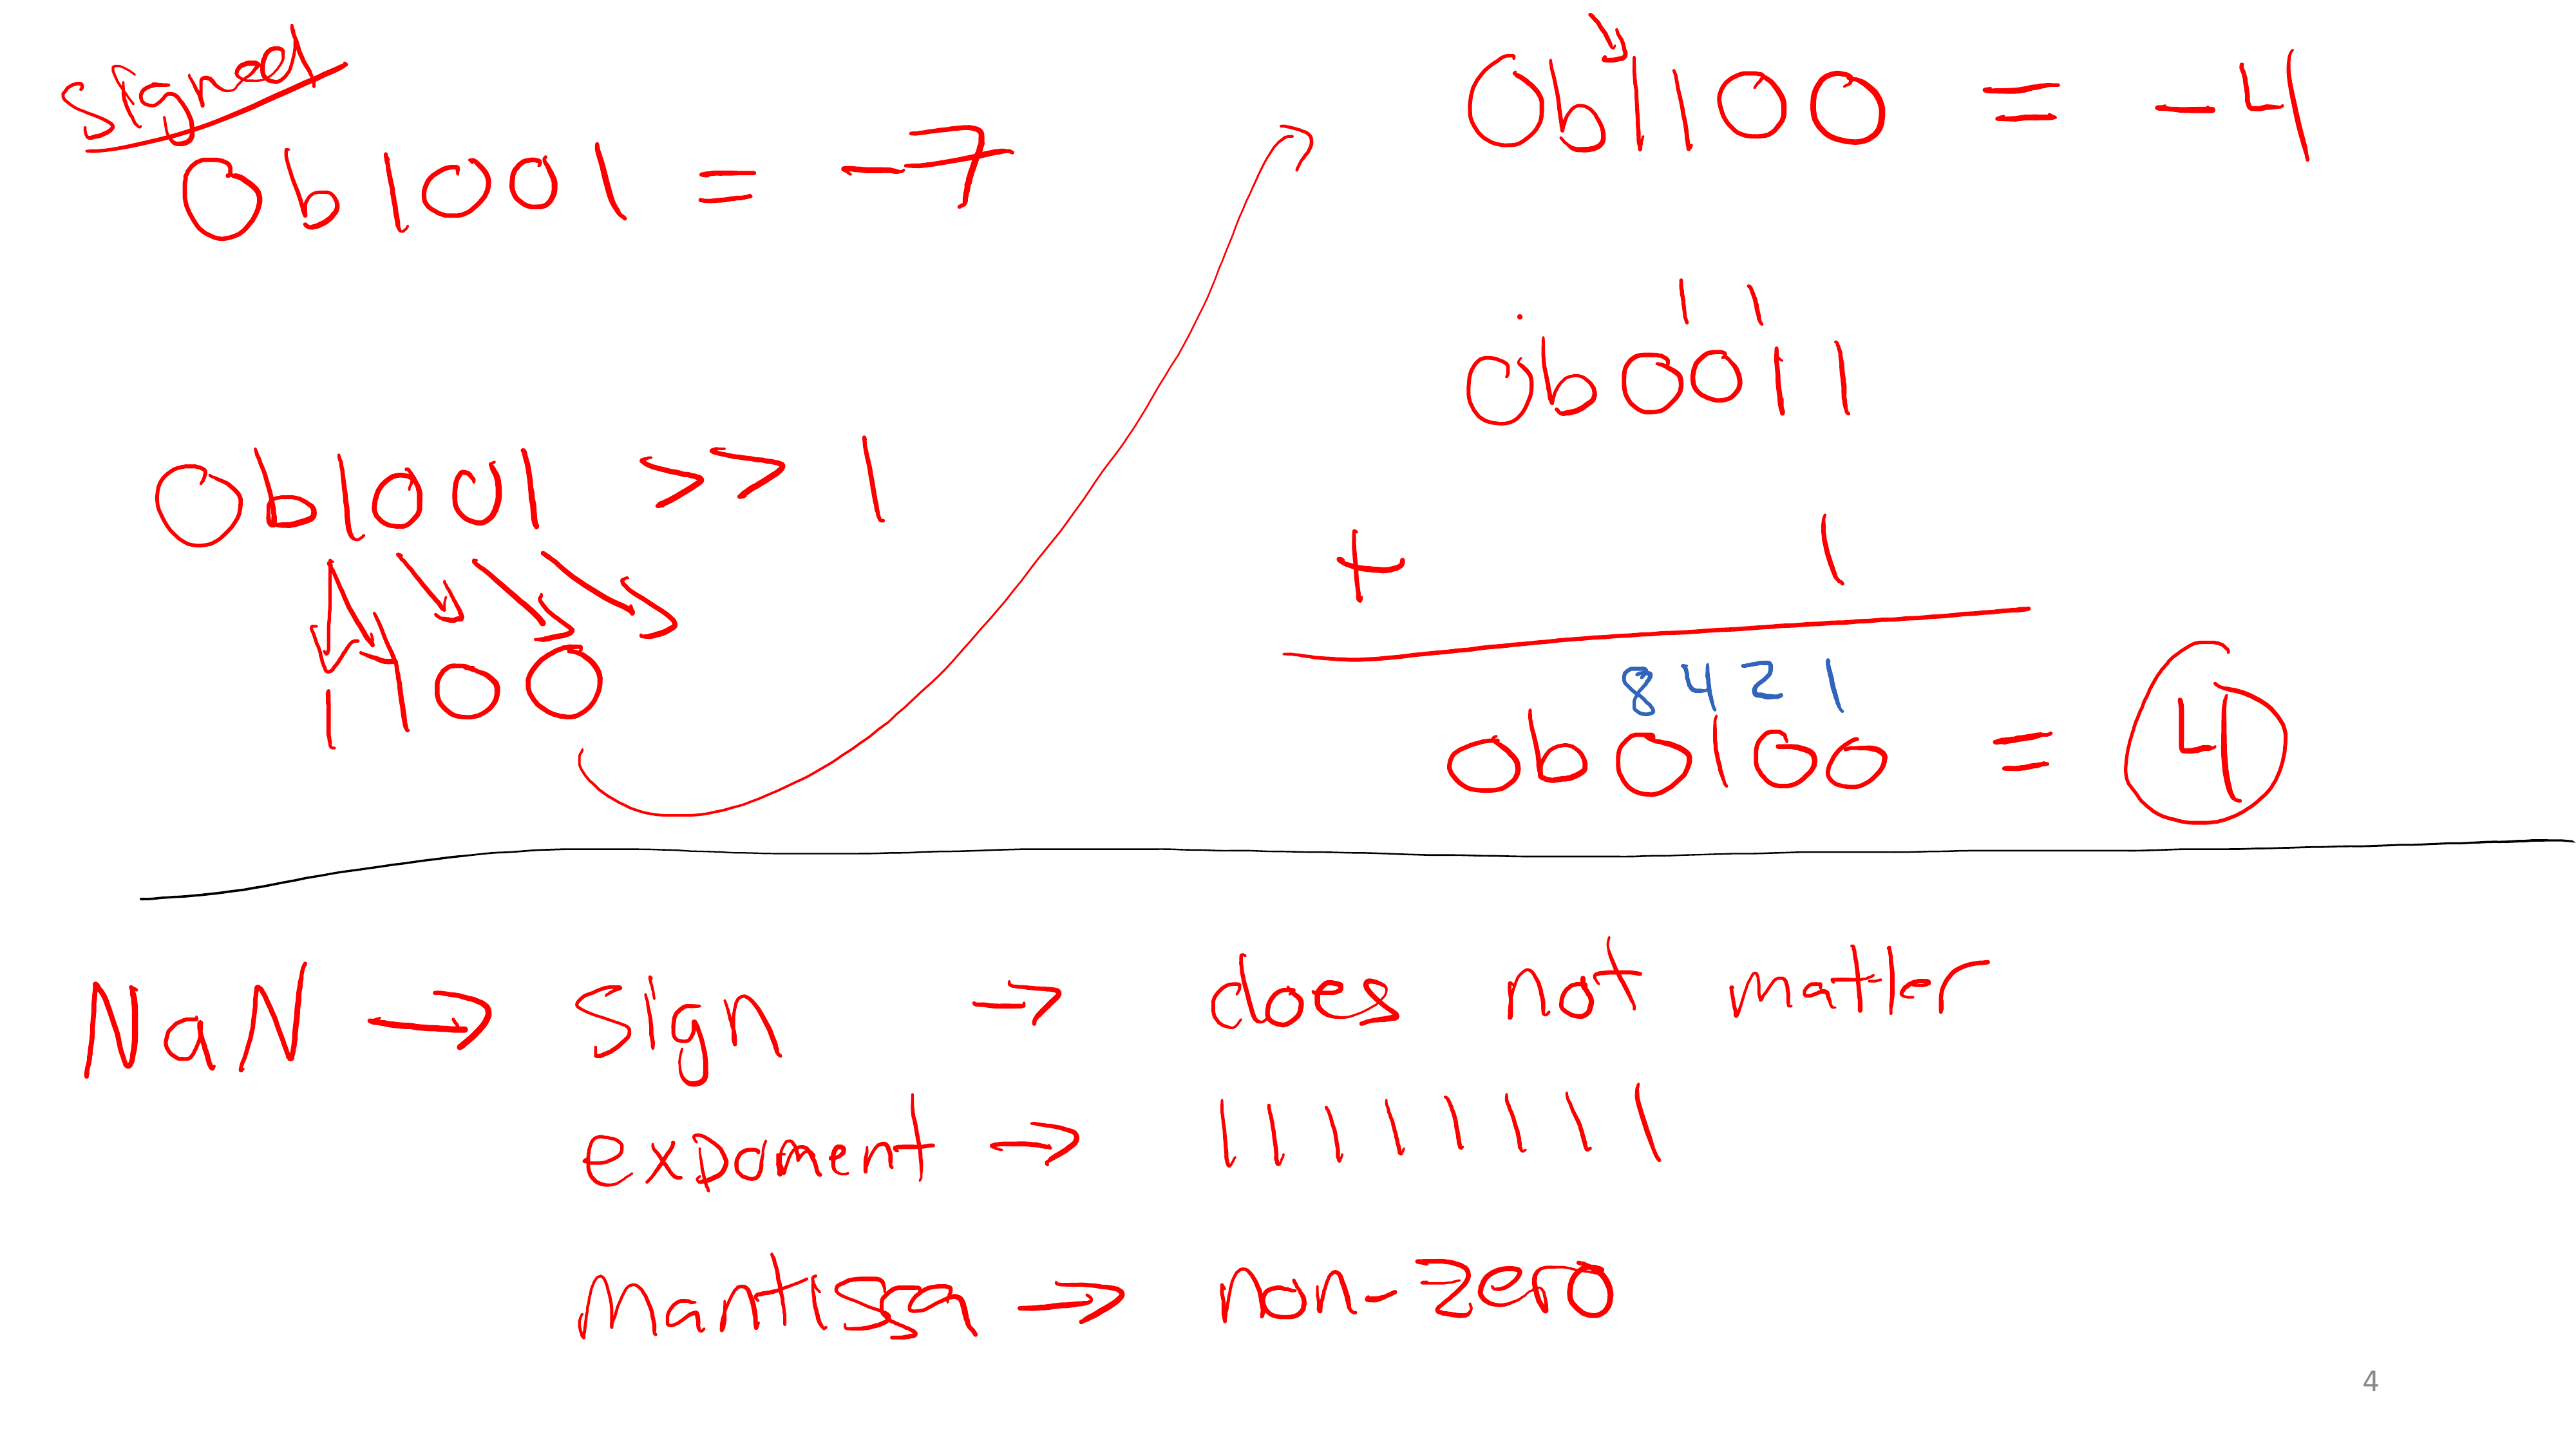 Signed
0b1001 = -7
0b1001 >> 1
1100
0b1100 = -4
1 1
0b0011
+ 1
8 4 2 1
0b0100 = 4
NaN → Sign → does not matter
exponent → 11111111
Mantissa → non-zero
4